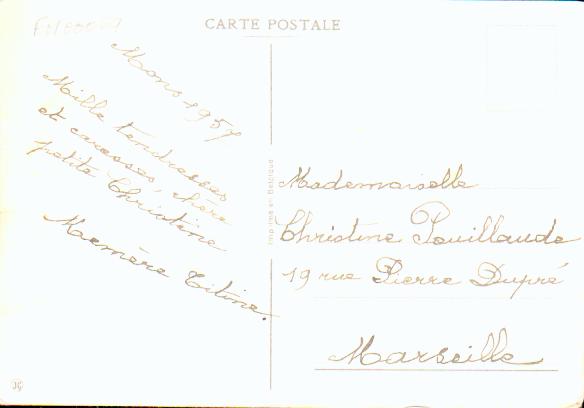 CARTE POSTALE
Mons 1957
Mille tendresses
et caresses, chère
petite Christine
Maemère Titine.
Imprimé en Belgique
Mademoiselle
Christine Pouillaude
19 rue Pierre Dupré
Marseille